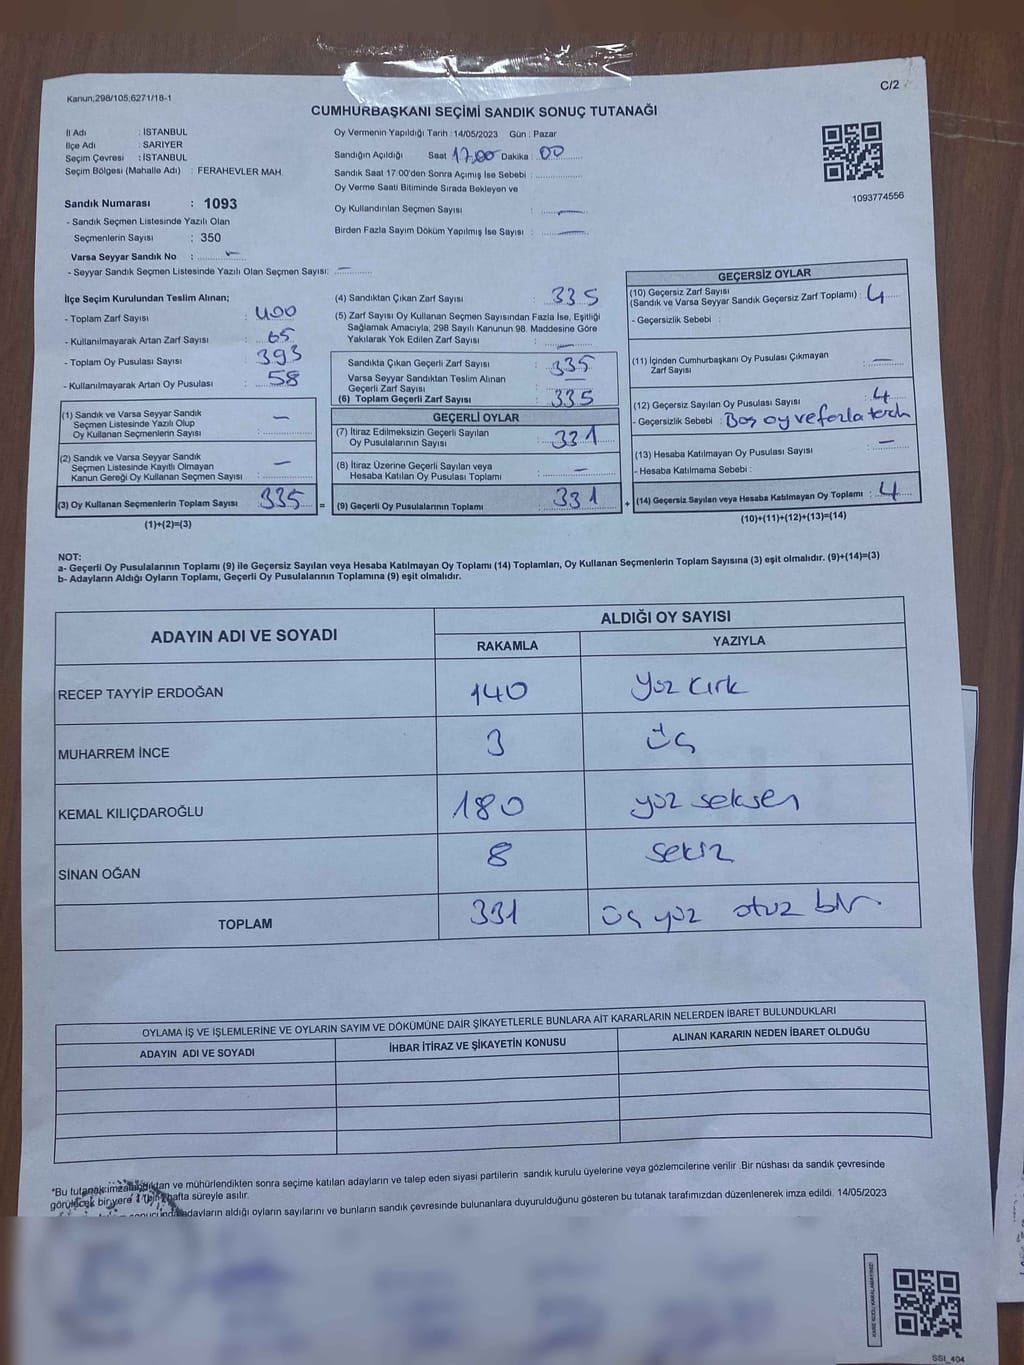 Kanun;298/105,6271/18-1
C/2
CUMHURBAŞKANI SEÇİMİ SANDIK SONUÇ TUTANAĞI
İl Adı : İSTANBUL
İlçe Adı : SARIYER
Seçim Çevresi : İSTANBUL
Seçim Bölgesi (Mahalle Adı) : FERAHEVLER MAH.
Sandık Numarası : 1093
- Sandık Seçmen Listesinde Yazılı Olan
Seçmenlerin Sayısı : 350
Varsa Seyyar Sandık No : –
- Seyyar Sandık Seçmen Listesinde Yazılı Olan Seçmen Sayısı: –
Oy Vermenin Yapıldığı Tarih : 14/05/2023 Gün : Pazar
Sandığın Açıldığı Saat 17.00 Dakika : 00
Sandık Saat 17:00'den Sonra Açımış İse Sebebi :
Oy Verme Saati Bitiminde Sırada Bekleyen ve
Oy Kullandırılan Seçmen Sayısı : —
Birden Fazla Sayım Döküm Yapılmış İse Sayısı : —
1093774556
İlçe Seçim Kurulundan Teslim Alınan;
- Toplam Zarf Sayısı : 400
- Kullanılmayarak Artan Zarf Sayısı : 65
- Toplam Oy Pusulası Sayısı : 393
- Kullanılmayarak Artan Oy Pusulası : 58
(1) Sandık ve Varsa Seyyar Sandık
Seçmen Listesinde Yazılı Olup
Oy Kullanan Seçmenlerin Sayısı : –
(2) Sandık ve Varsa Seyyar Sandık
Seçmen Listesinde Kayıtlı Olmayan
Kanun Gereği Oy Kullanan Seçmen Sayısı : –
(3) Oy Kullanan Seçmenlerin Toplam Sayısı : 335 =
(1)+(2)=(3)
(4) Sandıktan Çıkan Zarf Sayısı : 335
(5) Zarf Sayısı Oy Kullanan Seçmen Sayısından Fazla İse, Eşitliği
Sağlamak Amacıyla; 298 Sayılı Kanunun 98. Maddesine Göre
Yakılarak Yok Edilen Zarf Sayısı : —
Sandıkta Çıkan Geçerli Zarf Sayısı : 335
Varsa Seyyar Sandıktan Teslim Alınan
Geçerli Zarf Sayısı : —
(6) Toplam Geçerli Zarf Sayısı : 335
GEÇERLİ OYLAR
(7) İtiraz Edilmeksizin Geçerli Sayılan
Oy Pusulalarının Sayısı : 331
(8) İtiraz Üzerine Geçerli Sayılan veya
Hesaba Katılan Oy Pusulası Toplamı : –
(9) Geçerli Oy Pusulalarının Toplamı : 331 +
GEÇERSİZ OYLAR
(10) Geçersiz Zarf Sayısı
(Sandık ve Varsa Seyyar Sandık Geçersiz Zarf Toplamı) : 4
- Geçersizlik Sebebi :
(11) İçinden Cumhurbaşkanı Oy Pusulası Çıkmayan
Zarf Sayısı : –
(12) Geçersiz Sayılan Oy Pusulası Sayısı : 4
- Geçersizlik Sebebi : Boş oy ve fazla terch
(13) Hesaba Katılmayan Oy Pusulası Sayısı : –
- Hesaba Katılmama Sebebi :
(14) Geçersiz Sayılan veya Hesaba Katılmayan Oy Toplamı : 4
(10)+(11)+(12)+(13)=(14)
NOT:
a- Geçerli Oy Pusulalarının Toplamı (9) ile Geçersiz Sayılan veya Hesaba Katılmayan Oy Toplamı (14) Toplamları, Oy Kullanan Seçmenlerin Toplam Sayısına (3) eşit olmalıdır. (9)+(14)=(3)
b- Adayların Aldığı Oyların Toplamı, Geçerli Oy Pusulalarının Toplamına (9) eşit olmalıdır.
ADAYIN ADI VE SOYADI
ALDIĞI OY SAYISI
RAKAMLA YAZIYLA
RECEP TAYYİP ERDOĞAN 140 yüz kırk
MUHARREM İNCE 3 üç
KEMAL KILIÇDAROĞLU 180 yüz seksen
SİNAN OĞAN 8 sekiz
TOPLAM 331 üç yüz otuz bir
OYLAMA İŞ VE İŞLEMLERİNE VE OYLARIN SAYIM VE DÖKÜMÜNE DAİR ŞİKAYETLERLE BUNLARA AİT KARARLARIN NELERDEN İBARET BULUNDUKLARI
ADAYIN ADI VE SOYADI İHBAR İTİRAZ VE ŞİKAYETİN KONUSU ALINAN KARARIN NEDEN İBARET OLDUĞU
*Bu tutanak imzalandıktan ve mühürlendikten sonra seçime katılan adayların ve talep eden siyasi partilerin sandık kurulu üyelerine veya gözlemcilerine verilir .Bir nüshası da sandık çevresinde
görülecek bir yere 1 hafta süreyle asılır.
adayların aldığı oyların sayılarını ve bunların sandık çevresinde bulunanlara duyurulduğunu gösteren bu tutanak tarafımızdan düzenlenerek imza edildi. 14/05/2023
SSI_404